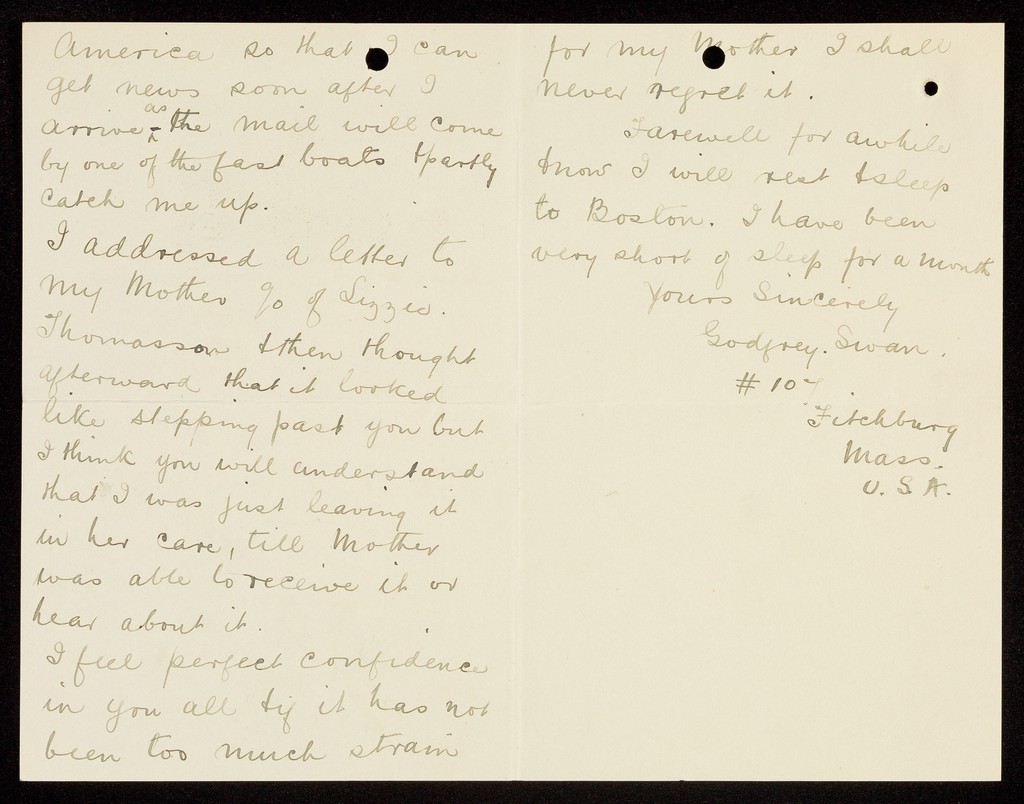 America so that I can
get news soon after I
arrive as the mail will come
by one of the fast boats & partly
catch me up.
I addressed a letter to
my Mother c/o of Lizzie.
Thomasson & then thought
afterward that it looked
like stepping past you but
I think you will understand
that I was just leaving it
in her care, till Mother
was able to receive it or
hear about it.
I feel perfect confidence
in you all & if it has not
been too much strain
for my Mother I shall
never regret it.
Farewell for awhile
& now I will rest & sleep
to Boston. I have been
very short of sleep for a month
Yours Sincerely
Godfrey. Swan.
# 107
Fitchburg
Mass.
U. S. A.